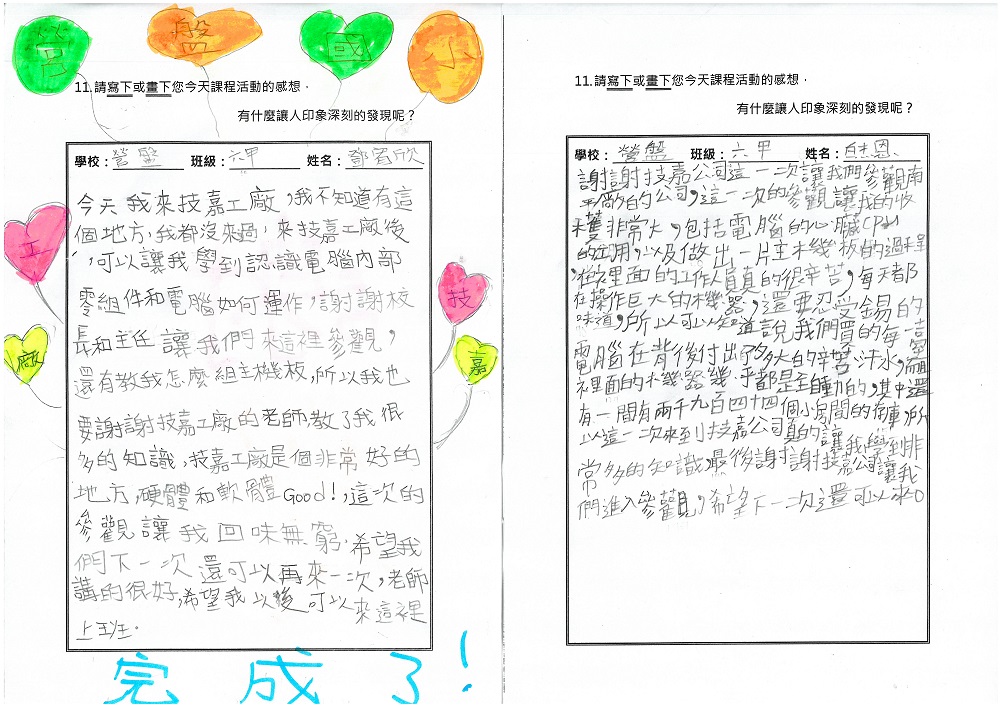 營 盤 國 小
11.請寫下或畫下您今天課程活動的感想，
有什麼讓人印象深刻的發現呢？
學校：營盤 班級：六甲 姓名：鄧宥欣
今天我來技嘉工廠，我不知道有這
個地方，我都沒來過，來技嘉工廠後
，可以讓我學到認識電腦內部
零組件和電腦如何運作，謝謝校
長和主任讓我們來這裡參觀，
還有教我怎麼組主機板，所以我也
要謝謝技嘉工廠的老師教了我很
多的知識，技嘉工廠是個非常好的
地方，硬體和軟體Good!，這次的
參觀讓我回味無窮，希望我
們下一次還可以再來一次，老師
講的很好，希望我以後可以來這裡
上班。
技
嘉
工
廠
完成了!
11.請寫下或畫下您今天課程活動的感想，
有什麼讓人印象深刻的發現呢？
學校：營盤 班級：六甲 姓名：恩
謝謝技嘉公司這一次讓我們參觀南
平廠的公司，這一次的參觀讓我的收
穫非常大，包括電腦的心臟CPU
的功用，以及做出一片主木機板的過程
，在這裡面的工作人員真的很辛苦，每天都
在操作巨大的機器，還要忍受錫的
味道，所以可以知道說我們買的每一臺
電腦在背後付出了多大的辛苦汗水，而且
裡面的機器幾乎都是全自動的，其中還
有一間有兩千九百四十四個小房間的倉庫，所
以這一次來到技嘉公司真的讓我學到非
常多的知識，最後謝謝技嘉公司讓我
們進入參觀，希望下一次還可以來。